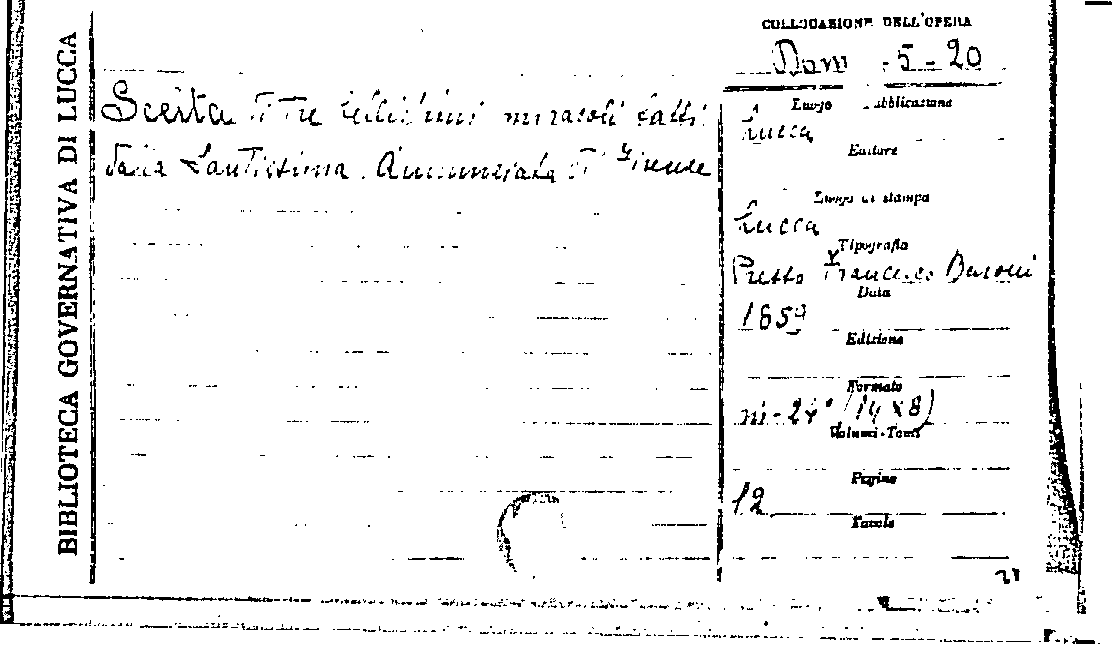 BIBLIOTECA GOVERNATIVA DI LUCCA
Scelta di tre bellissimi miracoli fatti
dalla Santissima Annunziata di Firenze
COLLOCAZIONE DELL'OPERA
Dom - 5 - 20
Luogo pubblicazione
Lucca
Editore
Luogo di stampa
Lucca
Tipografia
Presso Francesco Baroni
Data
1859
Edizione
Formato
in-24° (14 x 8)
Volumi-Tomi
Pagine
12
Tavole